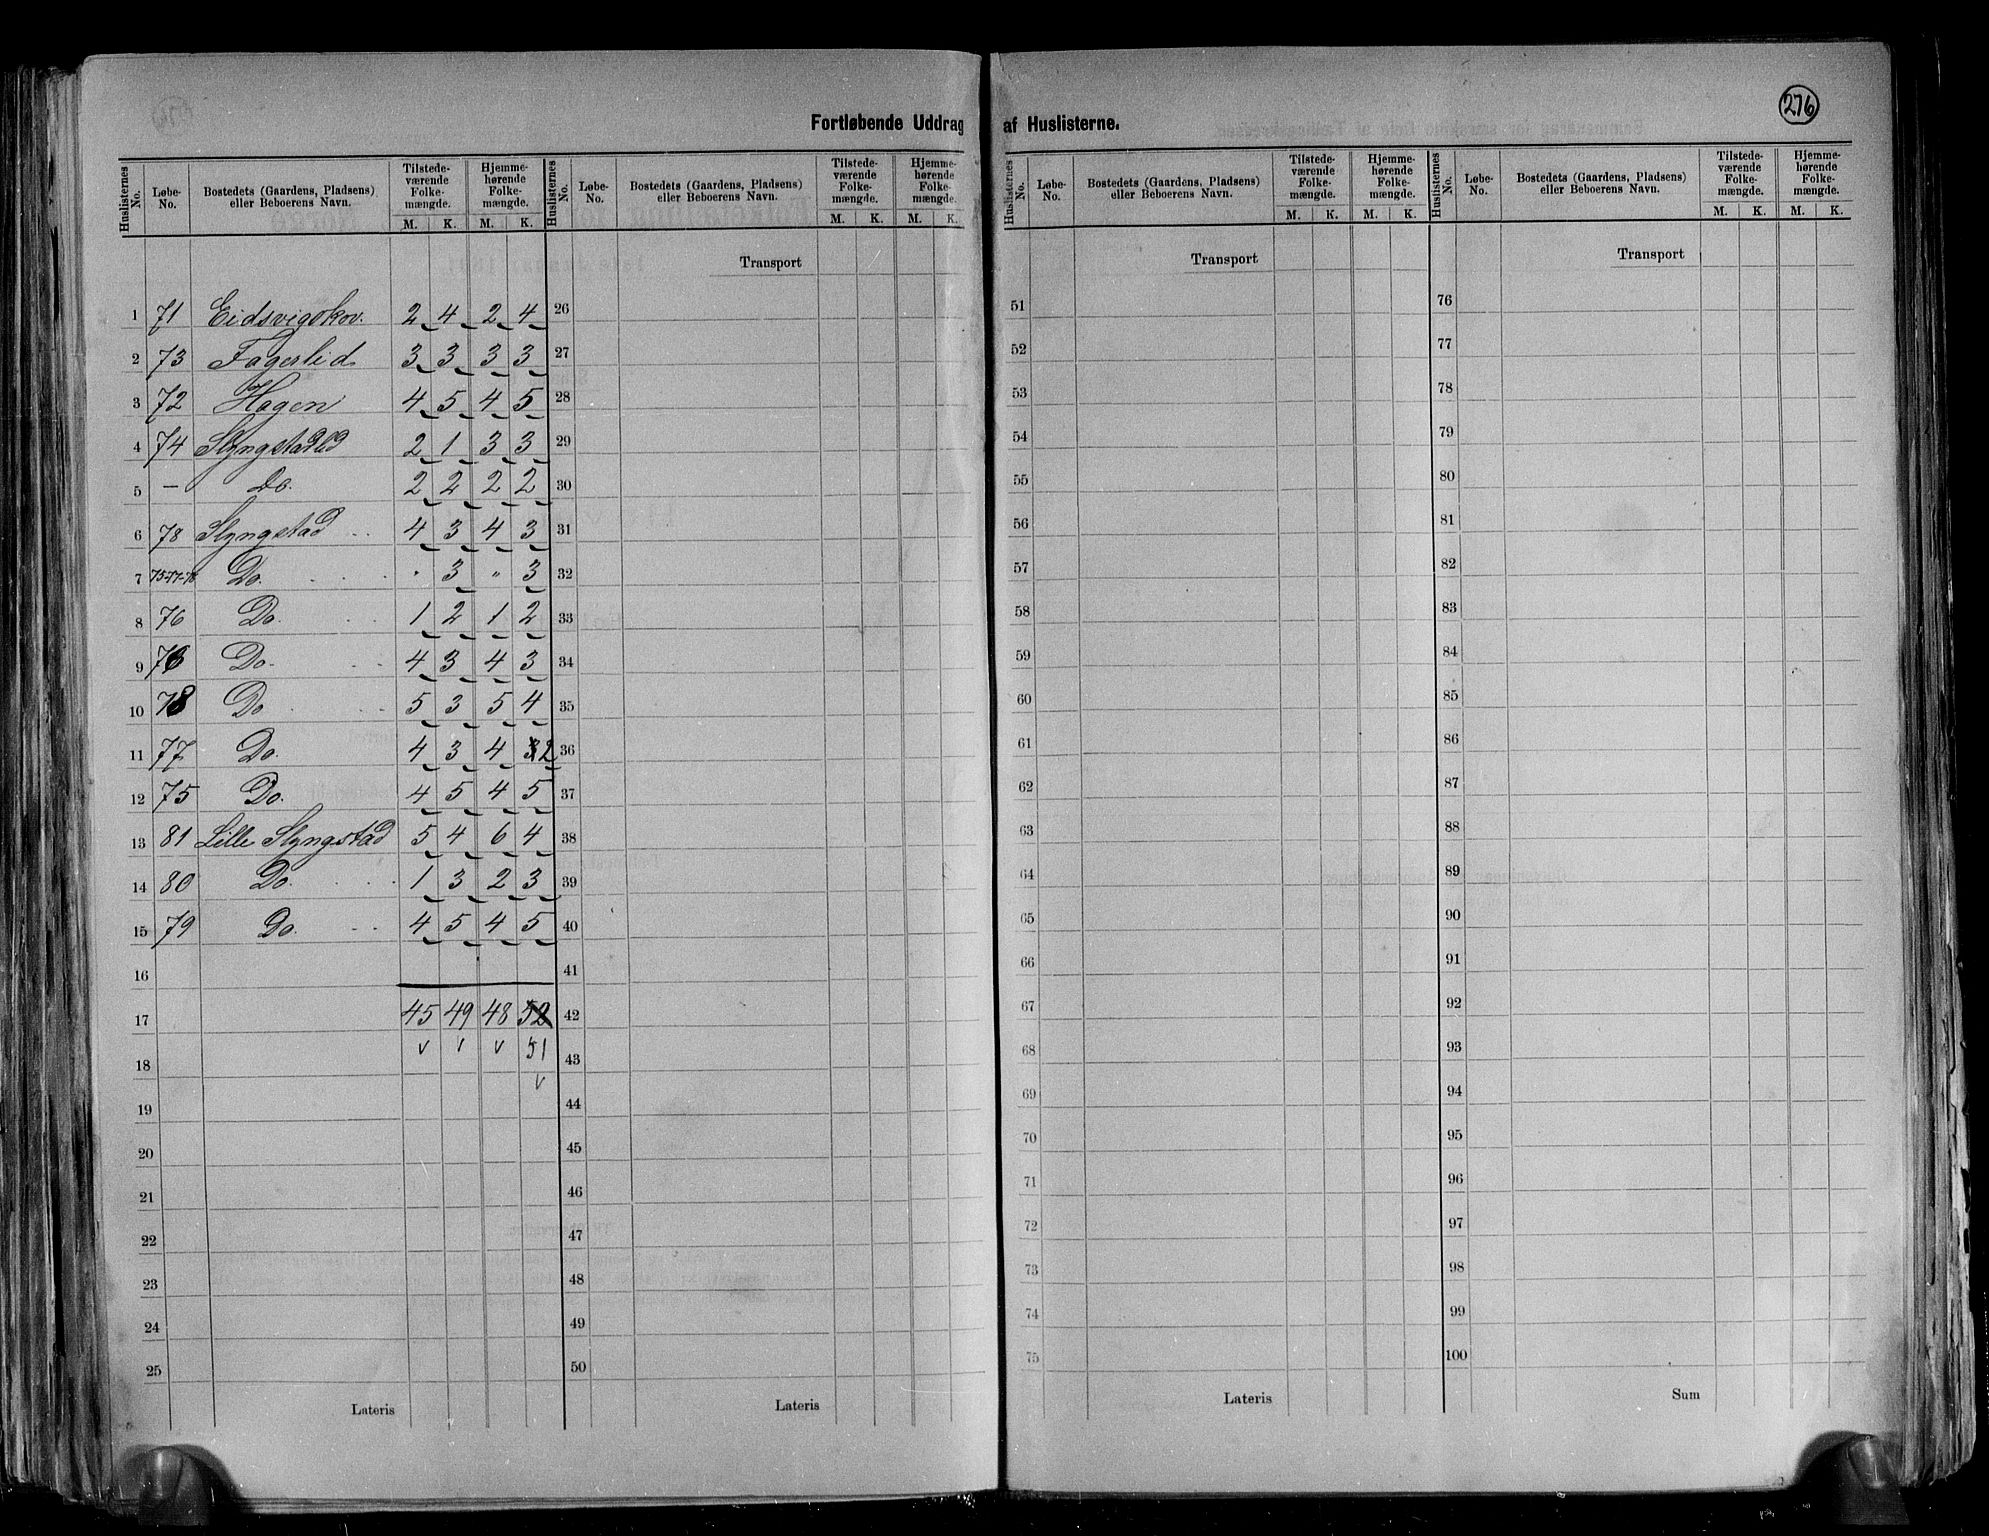 276
Fortløbende Uddrag af Huslisterne.
Huslisternes No. | Løbe-No. | Bostedets (Gaardens, Pladsens) eller Beboerens Navn. | Tilstedeværende Folkemængde. M. K. | Hjemmehørende Folkemængde. M. K.
Huslisternes No. | Løbe-No. | Bostedets (Gaardens, Pladsens) eller Beboerens Navn. | Tilstedeværende Folkemængde. M. K. | Hjemmehørende Folkemængde. M. K.
Huslisternes No. | Løbe-No. | Bostedets (Gaardens, Pladsens) eller Beboerens Navn. | Tilstedeværende Folkemængde. M. K. | Hjemmehørende Folkemængde. M. K.
Huslisternes No. | Løbe-No. | Bostedets (Gaardens, Pladsens) eller Beboerens Navn. | Tilstedeværende Folkemængde. M. K. | Hjemmehørende Folkemængde. M. K.
Transport Transport Transport
1 71 Eidsvigskov. 2 4 2 4 26 51 76
2 73 Fagerlid 3 3 3 3 27 52 77
3 72 Hagen 4 5 4 5 28 53 78
4 74 Slyngstadlid 2 1 3 3 29 54 79
5 — Do. 2 2 2 2 30 55 80
6 78 Slyngstad 4 3 4 3 31 56 81
7 75-77-78 Do. " 3 " 3 32 57 82
8 76 Do. 1 2 1 2 33 58 83
9 76 Do. 4 3 4 3 34 59 84
10 78 Do 5 3 5 4 35 60 85
11 77 Do. 4 3 4 3 2 36 61 86
12 75 Do. 4 5 4 5 37 62 87
13 81 Lille Slyngstad 5 4 6 4 38 63 88
14 80 Do. 1 3 2 3 39 64 89
15 79 Do. 4 5 4 5 40 65 90
16 41 66 91
17 45 49 48 52 42 67 92
18 51 43 68 93
19 44 69 94
20 45 70 95
21 46 71 96
22 47 72 97
23 48 73 98
24 49 74 99
25 50 75 100
Lateris Lateris Lateris Sum